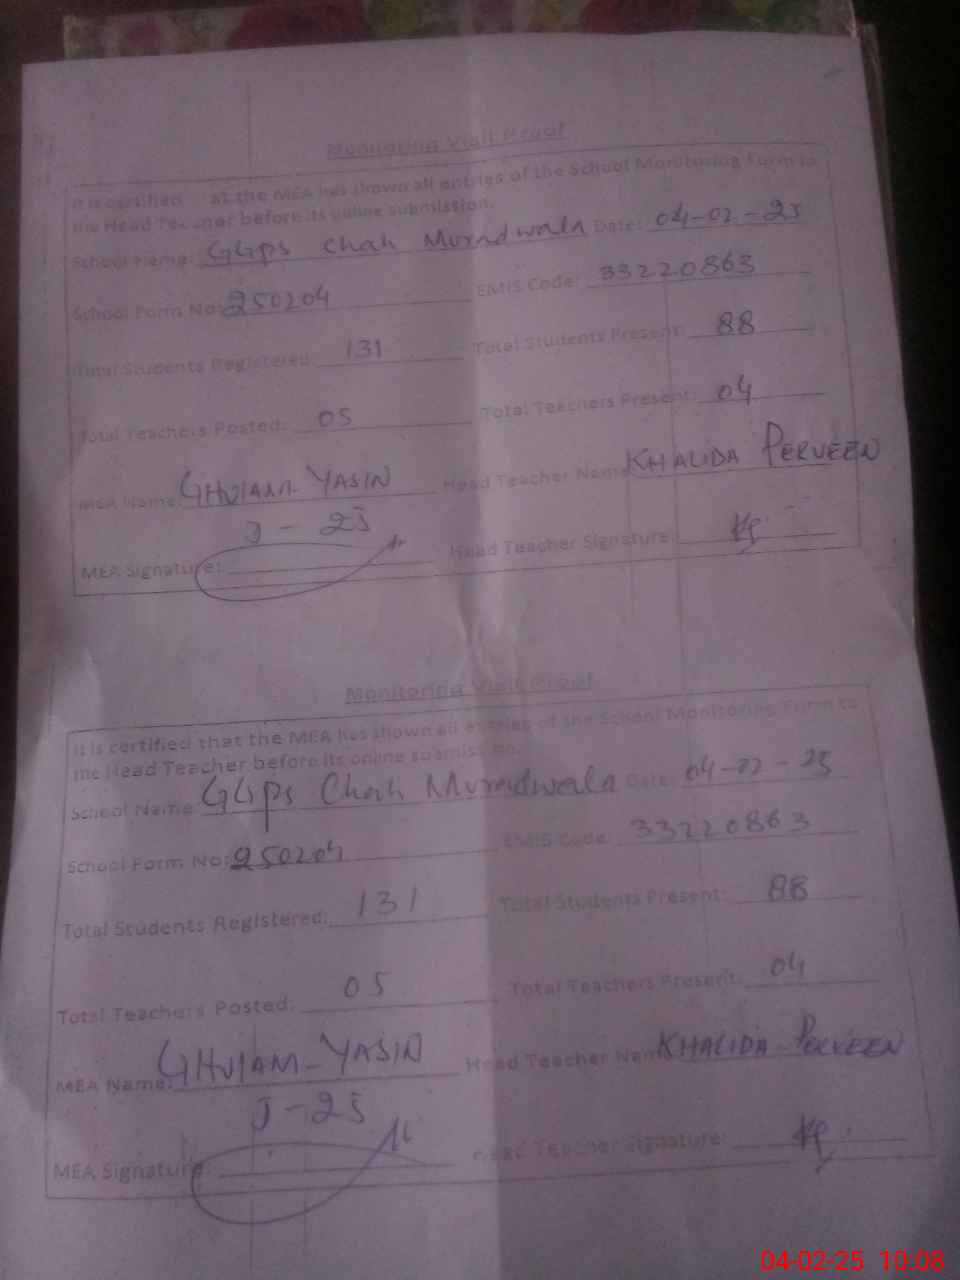 Monitoring Visit Proof
It is certified at the MEA has shown all entries of the School Monitoring Form to
the Head Teacher before its online submission.
School Name: GGPS Chah Muradwala Date: 04-02-25
School Form No: 250204 EMIS Code: 33220863
Total Students Registered: 131 Total Students Present: 88
Total Teachers Posted: 05 Total Teachers Present: 04
MEA Name: GHULAM-YASIN Head Teacher Name KHALIDA PERVEEN
J-25
MEA Signature: Head Teacher Signature:
Monitoring Visit Proof
It is certified that the MEA has shown all entries of the School Monitoring Form to
the Head Teacher before its online submission.
School Name: GGPS Chah Muradwala Date: 04-02-25
School Form No: 250204 EMIS Code: 33220863
Total Students Registered: 131 Total Students Present: 88
Total Teachers Posted: 05 Total Teachers Present: 04
MEA Name: GHULAM-YASIN Head Teacher Name KHALIDA PERVEEN
J-25
MEA Signature: Head Teacher Signature:
04-02-25 10:08